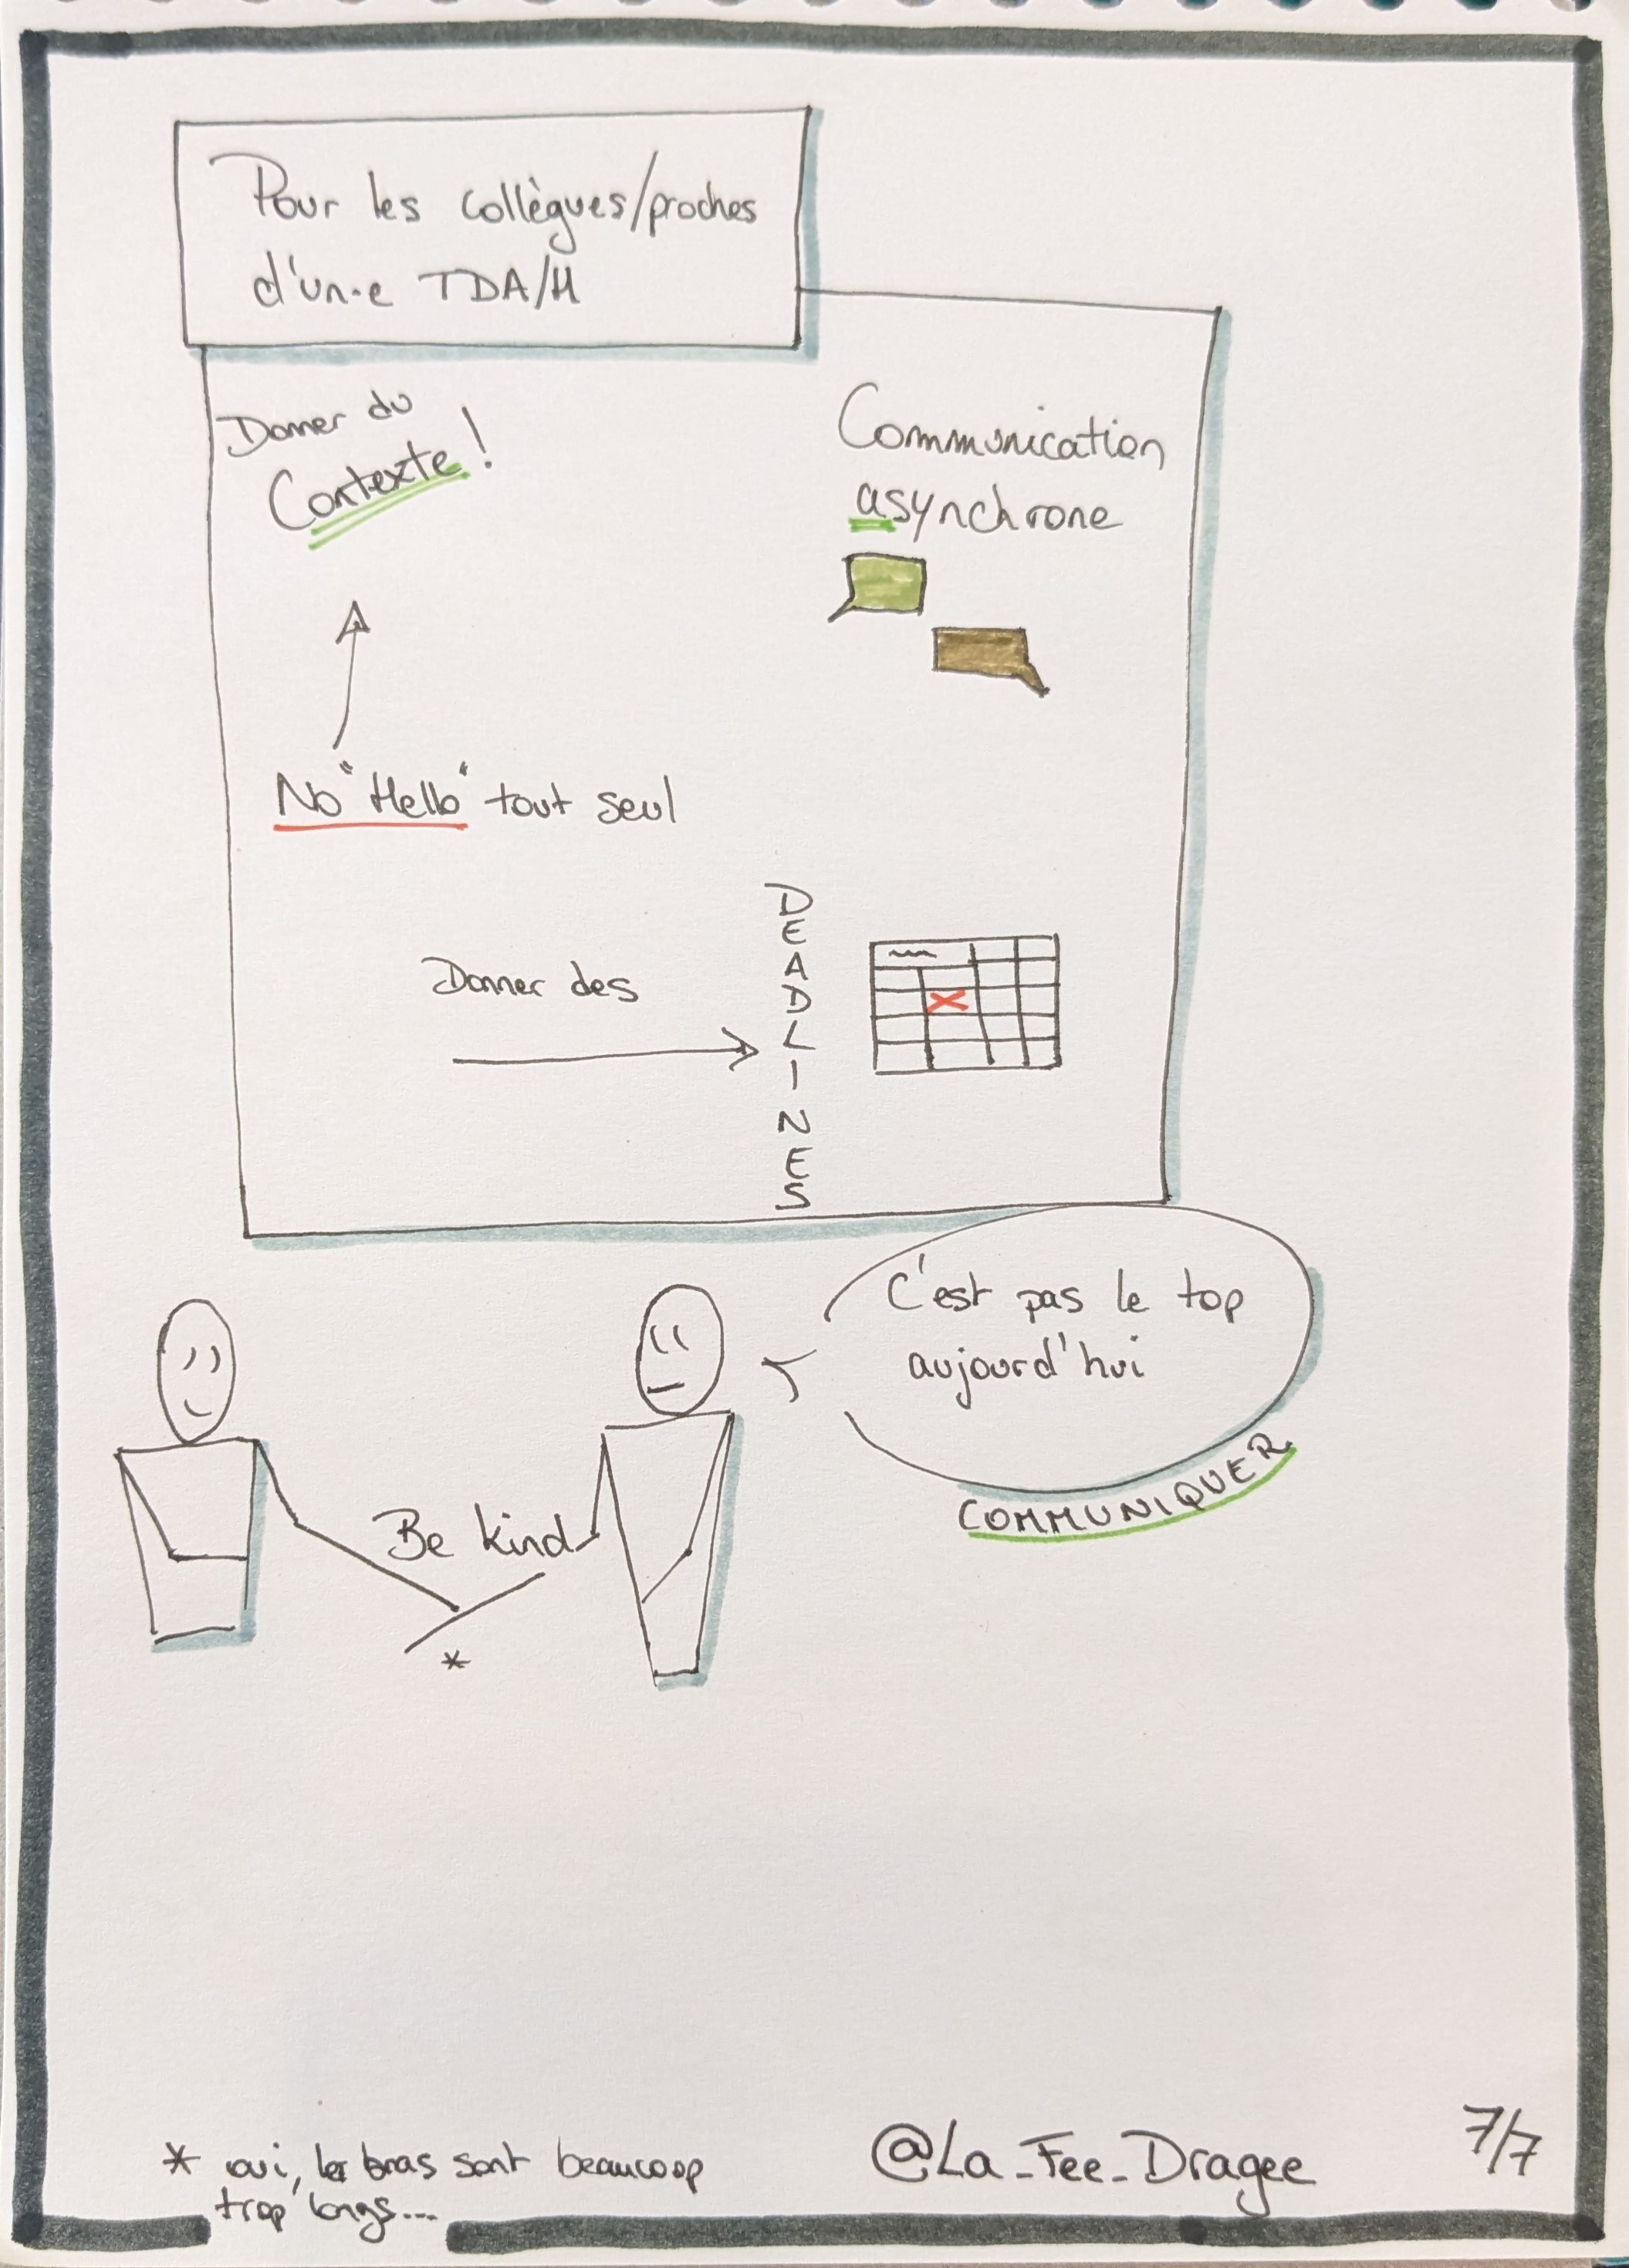 Pour les collègues/proches
d'un·e TDA/H
Donner du
Contexte !
Communication
asynchrone
No "Hello" tout seul
Donner des
DEADLINES
C'est pas le top
aujourd'hui
COMMUNIQUER
Be kind
*
* oui, les bras sont beaucoup
trop longs...
@La_Fee_Dragee
7/7